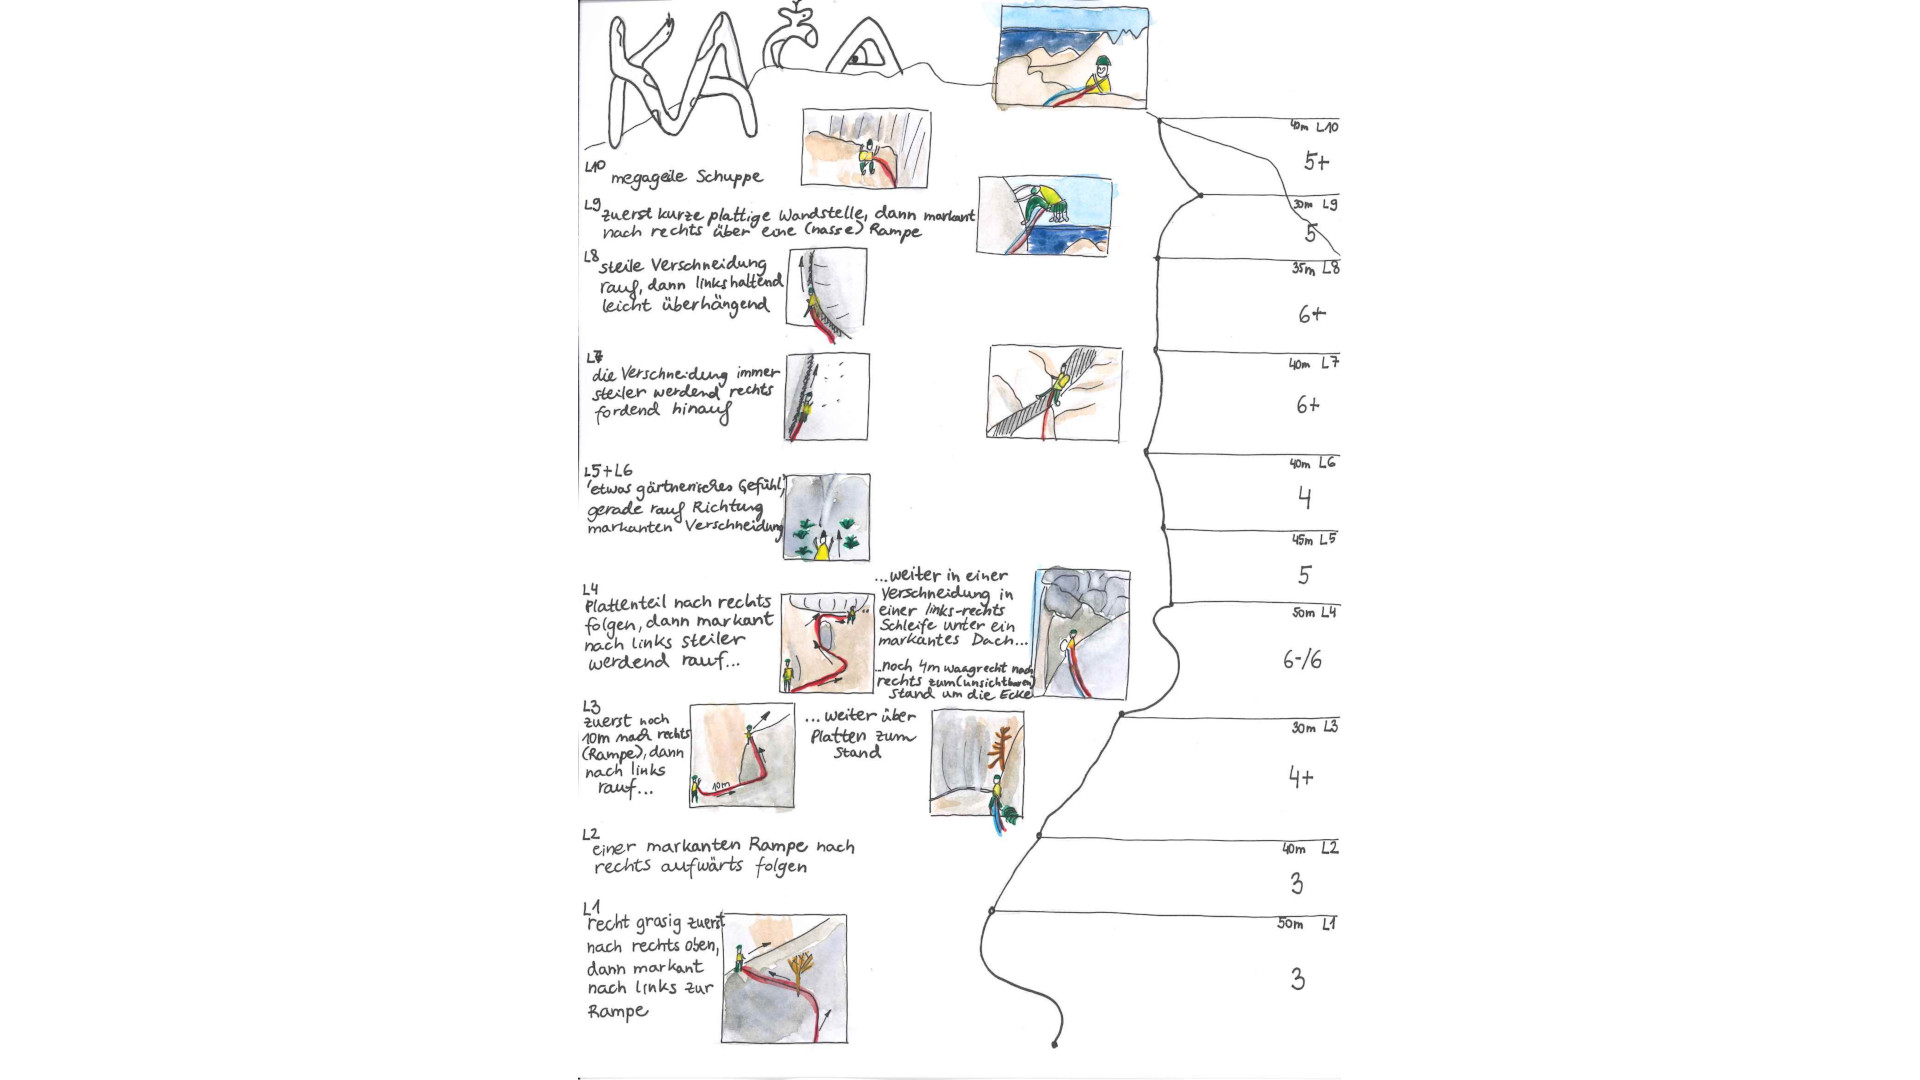 KAČA
L10
megageile Schuppe
L9
zuerst kurze plattige Wandstelle, dann markant
nach rechts über eine (nasse) Rampe
L8
steile Verschneidung
rauf, dann linkshaltend
leicht überhängend
L7
die Verschneidung immer
steiler werdend rechts
fordend hinauf
L5+L6
'etwas gärtnerisches Gefühl,'
gerade rauf Richtung
markanten Verschneidung
L4
Plattenteil nach rechts
folgen, dann markant
nach links steiler
werdend rauf...
...weiter in einer
Verschneidung in
einer links-rechts
Schleife unter ein
markantes Dach...
...noch 4m waagrecht nach
rechts zum (unsichtbaren)
Stand um die Ecke
L3
zuerst noch
10m nach rechts
(Rampe), dann
nach links
rauf...
10m
...weiter über
Platten zum
Stand
L2
einer markanten Rampe nach
rechts aufwärts folgen
L1
recht grasig zuerst
nach rechts oben,
dann markant
nach links zur
Rampe
40m L10
5+
30m L9
5
35m L8
6+
40m L7
6+
40m L6
4
45m L5
5
50m L4
6-/6
30m L3
4+
40m L2
3
50m L1
3